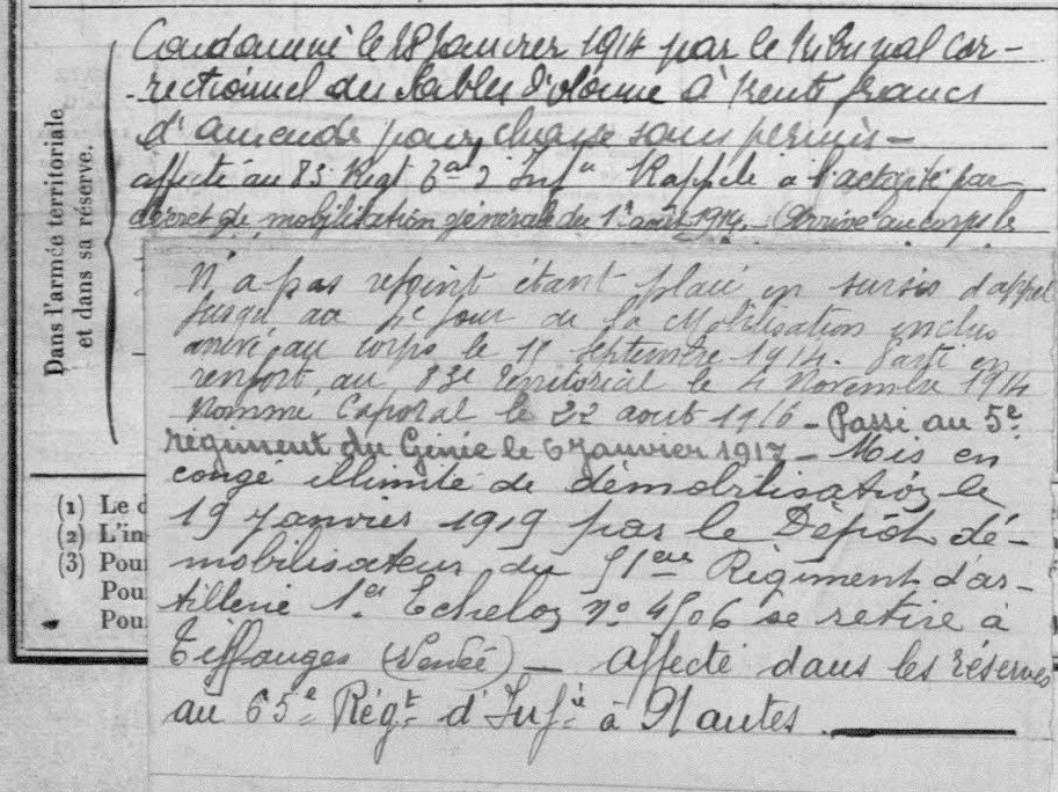 Dans l'armée territoriale
et dans sa réserve.
Condamné le 28 Janvier 1914 par le tribunal cor-
rectionnel des Sables d'olonne à trente francs
d'amende pour chasse sans permis –
affecté au 83 Régt Inf Rappelé à l'activité par
décret de mobilisation générale du 1er août 1914. Arrivé au corps le
N'a pas rejoint étant placé en sursis d'appel
jusqu'au jour de la Mobilisation inclus
arrivé au corps le septembre 1914. Parti en
renfort au 83e territorial le 4 Novembre 1914
Nommé Caporal le 22 aout 1916 – Passé au 5e
régiment du Génie le 6 Janvier 1917 – Mis en
congé illimité de démobilisation le
19 Janvier 1919 par le Dépôt dé-
mobilisateur du 51eme Régiment d'ar-
tillerie 1er Echelon No 4506 se retire à
Tiffauges (Vendée) – affecté dans les réserves
au 65e Régt d'Infie à Nantes
(1) Le d
(2) L'in
(3) Pou
Pou
Pou